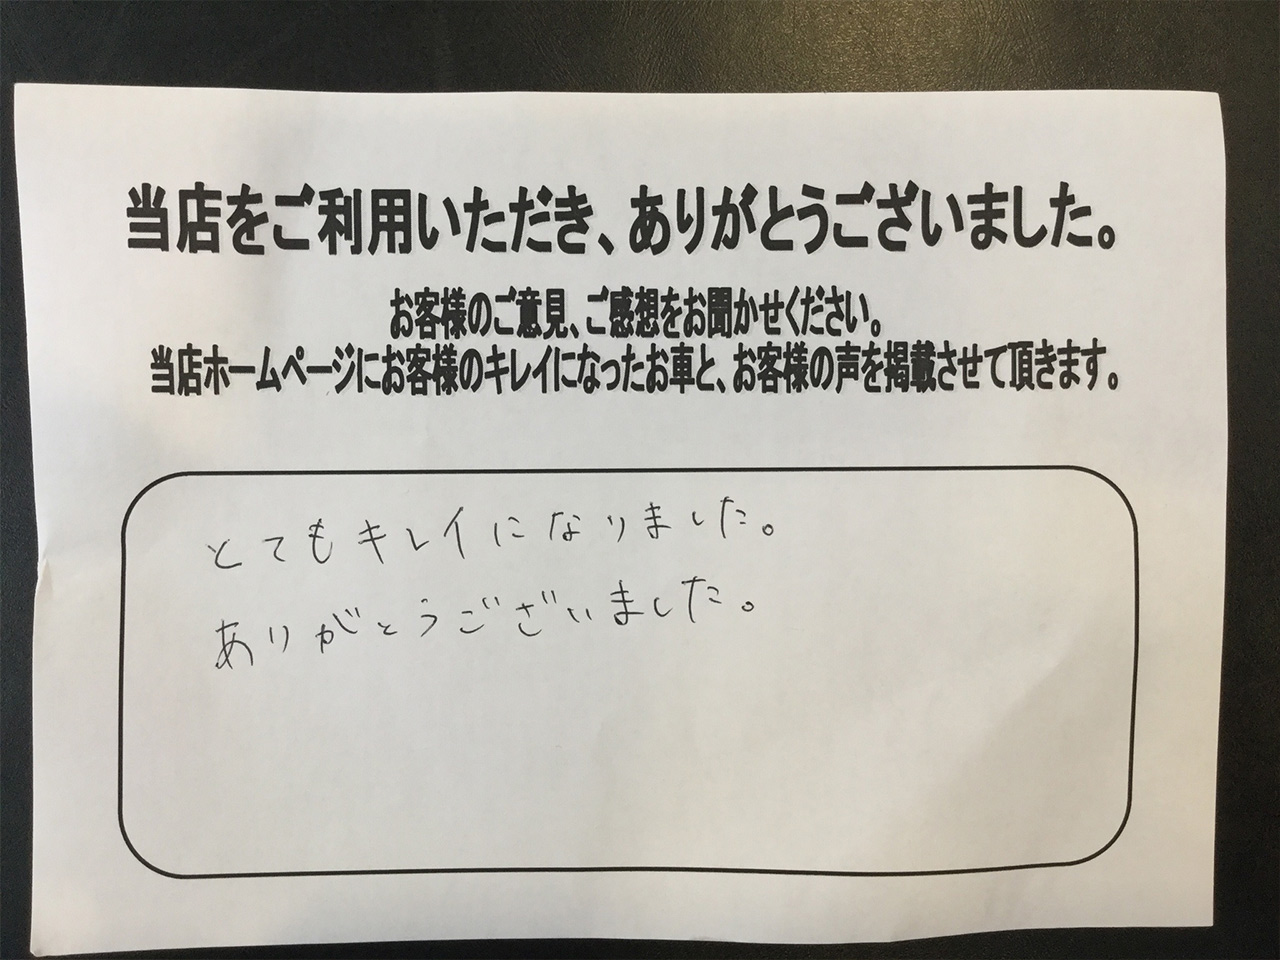 当店をご利用いただき、ありがとうございました。
お客様のご意見、ご感想をお聞かせください。
当店ホームページにお客様のキレイになったお車と、お客様の声を掲載させて頂きます。
とてもキレイになりました。
ありがとうございました。